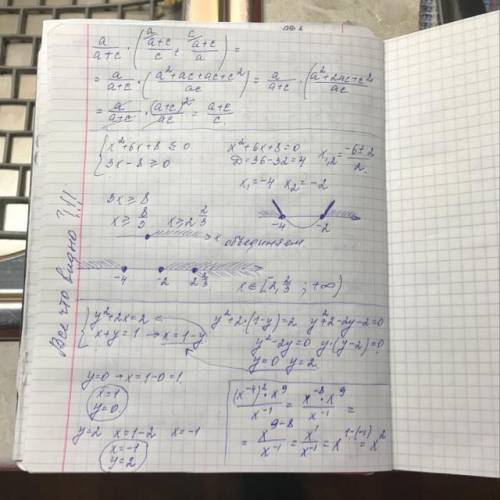 a/(a+c) · ((a/(a+c))/c + (c/(a+c))/a) =
= a/(a+c) · ((a²+ac+ac+c²)/ac) = a/(a+c) · (a²+2ac+c²)/ac
= a/(a+c) · (a+c)²/ac = (a+c)/c
{ x²+6x+8 ≥ 0
3x-8 ≥ 0
x²+6x+8=0
D=36-32=4
x₁,₂ = (-6±2)/2
x₁=-4 x₂=-2
3x ≥ 8
x ≥ 8/3 x ≥ 2 2/3
-4 -2
x объединяем
-4 -2 2 2/3
x∈[2 2/3; +∞)
Все что видно?!!
{ y²+2x=2
x+y=1 → x=1-y
y²+2·(1-y)=2 y²+2-2y-2=0
y²-2y=0 y·(y-2)=0
y=0 y=2
y=0 → x=1-0=1
x=1
y=0
y=2 x=1-2 x=-1
x=-1
y=2
(x⁻⁴)²·x⁹/x⁻¹ = x⁻⁸·x⁹/x⁻¹ =
= x⁹⁻⁸/x⁻¹ = x¹/x⁻¹ = x¹⁻⁽⁻¹⁾ = x²